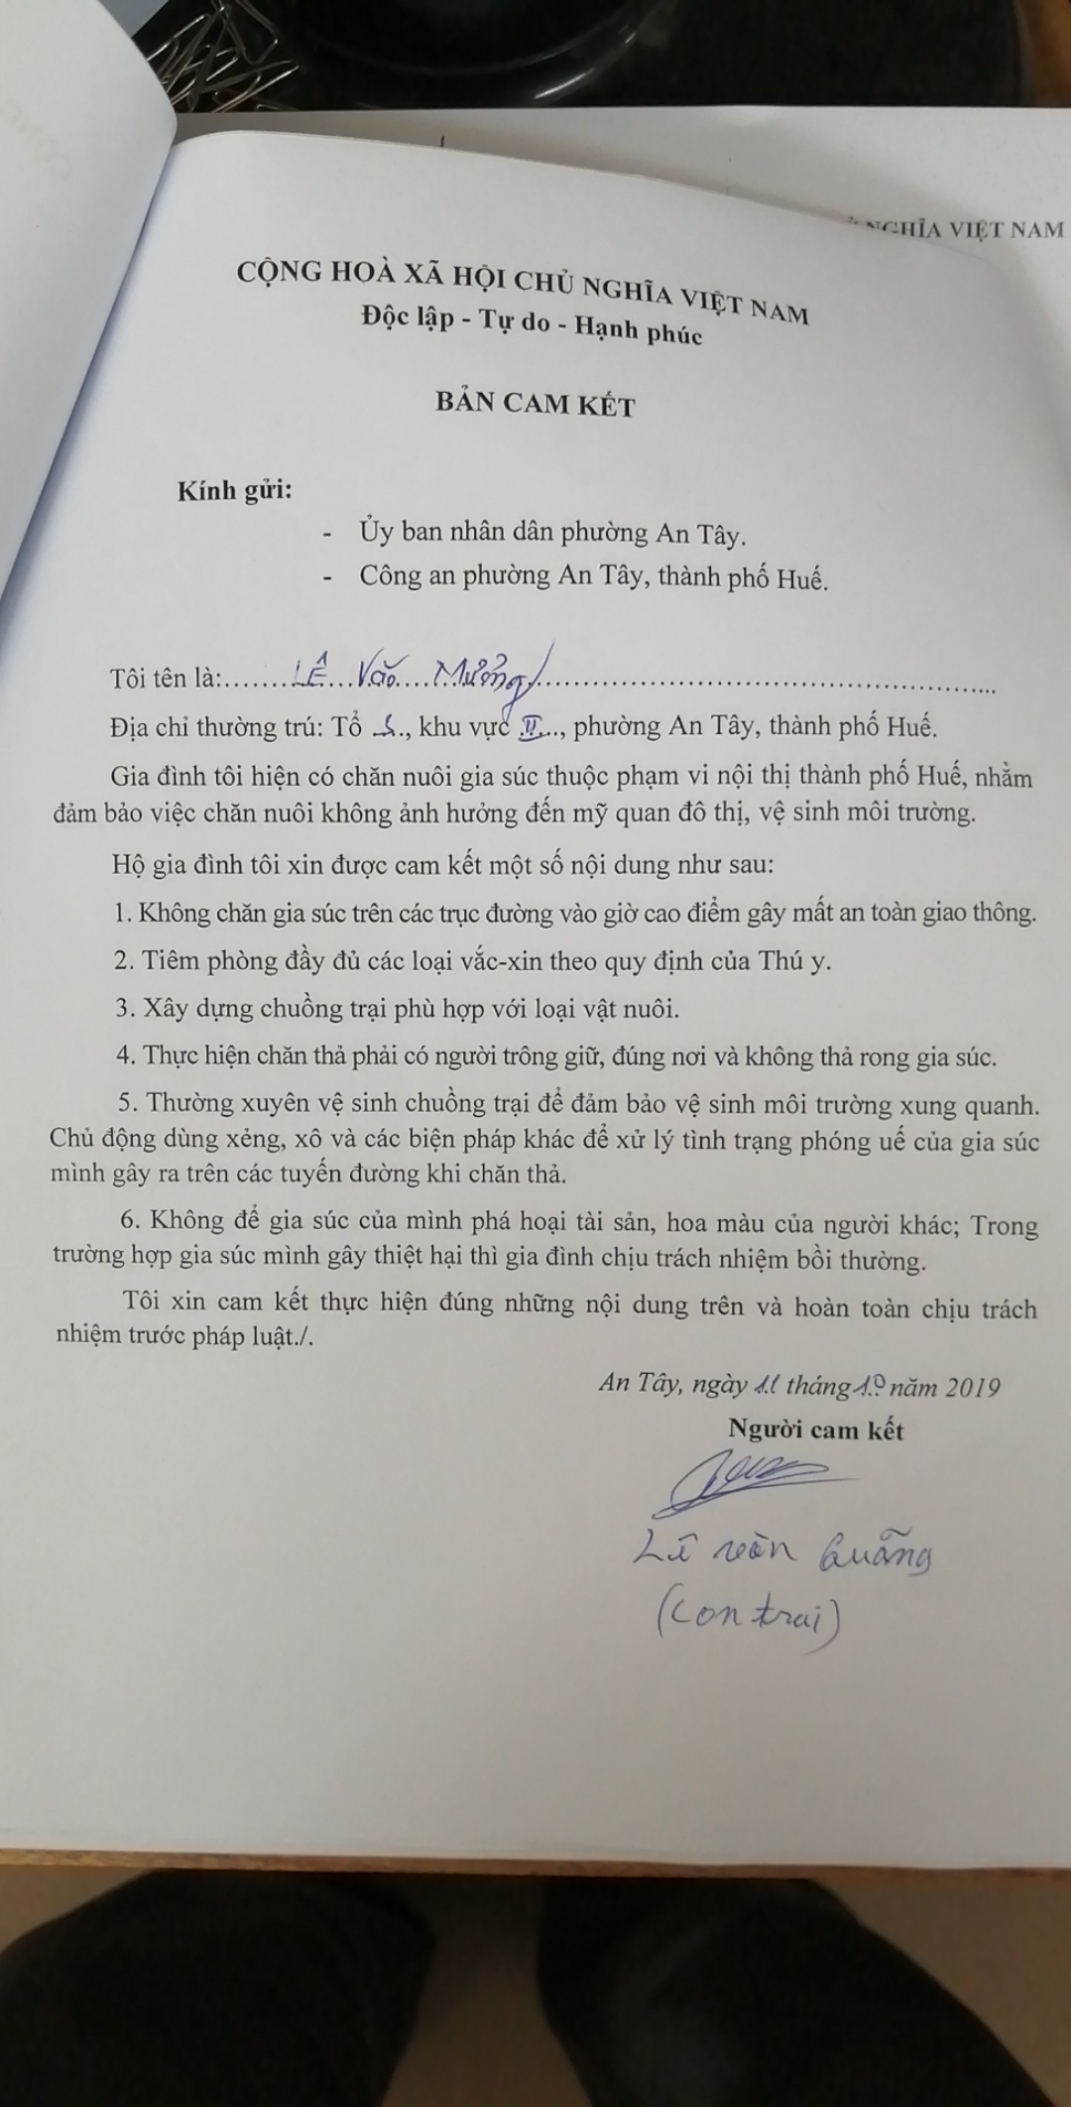 NGHĨA VIỆT NAM
CỘNG HOÀ XÃ HỘI CHỦ NGHĨA VIỆT NAM
Độc lập - Tự do - Hạnh phúc
BẢN CAM KẾT
Kính gửi:
- Ủy ban nhân dân phường An Tây.
- Công an phường An Tây, thành phố Huế.
Tôi tên là:.......LÊ...Văn....Mưởng...
Địa chỉ thường trú: Tổ .5., khu vực .II..., phường An Tây, thành phố Huế.
Gia đình tôi hiện có chăn nuôi gia súc thuộc phạm vi nội thị thành phố Huế, nhằm
đảm bảo việc chăn nuôi không ảnh hưởng đến mỹ quan đô thị, vệ sinh môi trường.
Hộ gia đình tôi xin được cam kết một số nội dung như sau:
1. Không chăn gia súc trên các trục đường vào giờ cao điểm gây mất an toàn giao thông.
2. Tiêm phòng đầy đủ các loại vắc-xin theo quy định của Thú y.
3. Xây dựng chuồng trại phù hợp với loại vật nuôi.
4. Thực hiện chăn thả phải có người trông giữ, đúng nơi và không thả rong gia súc.
5. Thường xuyên vệ sinh chuồng trại để đảm bảo vệ sinh môi trường xung quanh.
Chủ động dùng xẻng, xô và các biện pháp khác để xử lý tình trạng phóng uế của gia súc
mình gây ra trên các tuyến đường khi chăn thả.
6. Không để gia súc của mình phá hoại tài sản, hoa màu của người khác; Trong
trường hợp gia súc mình gây thiệt hại thì gia đình chịu trách nhiệm bồi thường.
Tôi xin cam kết thực hiện đúng những nội dung trên và hoàn toàn chịu trách
nhiệm trước pháp luật./.
An Tây, ngày 11 tháng 10 năm 2019
Người cam kết
Lê văn Quãng
(con trai)